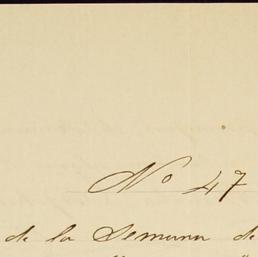 No 47
de la Semana de